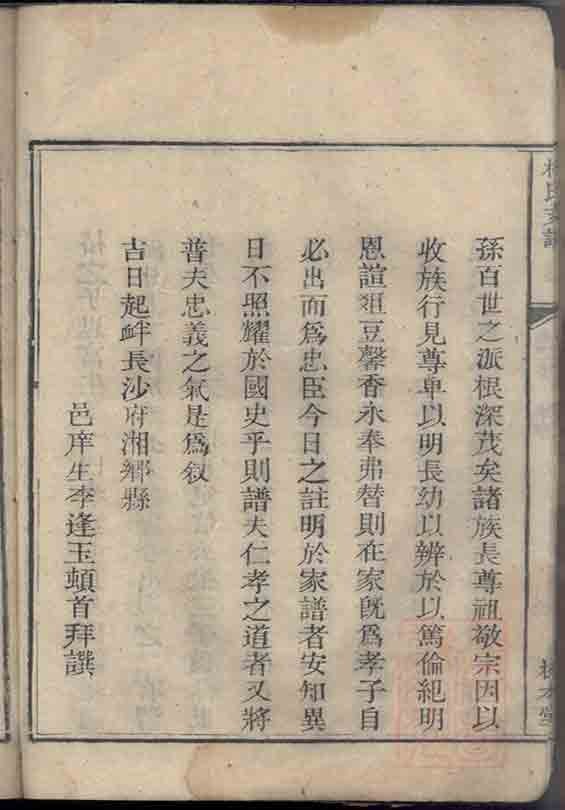 孫百世之派根深茂矣諸族長尊祖敬宗因以
收族行見尊卑以明長幼以辨於以篤倫紀明
恩誼俎豆馨香永奉弗替則在家旣爲孝子自
必出而爲忠臣今日之註明於家譜者安知異
日不照耀於國史乎則譜夫仁孝之道者又將
普夫忠義之氣是爲叙
吉日起衅長沙府湘鄉縣
邑庠生李逢玉頓首拜譔